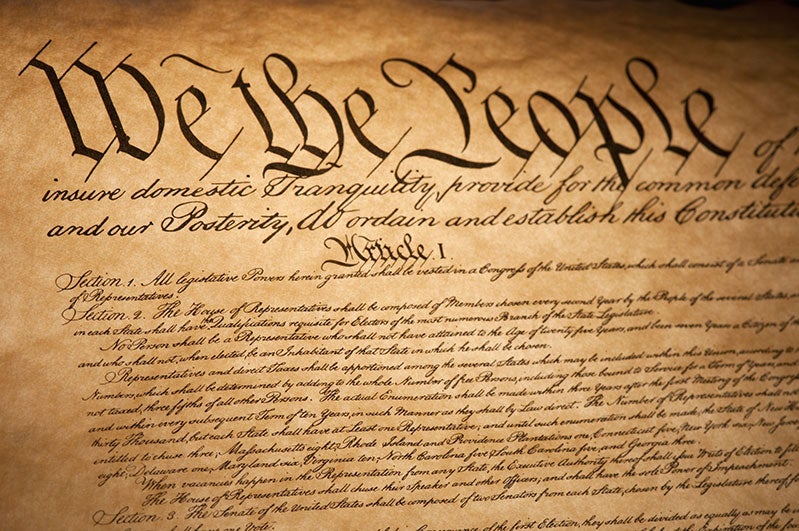 We the People of t
insure domestic Tranquility, provide for the common defe
and our Posterity, do ordain and establish this Constituti
Article. I.
Section. 1. All legislative Powers herein granted shall be vested in a Congress of the United States, which shall consist of a Senate a
of Representatives.
Section. 2. The House of Representatives shall be composed of Members chosen every second Year by the People of the several States, a
in each State shall have the Qualifications requisite for Electors of the most numerous Branch of the State Legislature.
No Person shall be a Representative who shall not have attained to the Age of twenty five Years, and been seven Years a Citizen of th
and who shall not, when elected, be an Inhabitant of that State in which he shall be chosen.
Representatives and direct Taxes shall be apportioned among the several States which may be included within this Union, according to
Numbers, which shall be determined by adding to the whole Number of free Persons, including those bound to Service for a Term of Years, and
not taxed, three fifths of all other Persons. The actual Enumeration shall be made within three Years after the first Meeting of the Congress
and within every subsequent Term of ten Years, in such Manner as they shall by Law direct. The Number of Representatives shall not
thirty Thousand, but each State shall have at Least one Representative; and until such enumeration shall be made, the State of New Ham
entitled to chuse three, Massachusetts eight, Rhode Island and Providence Plantations one, Connecticut five, New York six, New Jersey
eight, Delaware one, Maryland six, Virginia ten, North Carolina five, South Carolina five, and Georgia three.
When vacancies happen in the Representation from any State, the Executive Authority thereof shall issue Writs of Election to fill
The House of Representatives shall chuse their Speaker and other Officers; and shall have the sole Power of Impeachment.
Section. 3. The Senate of the United States shall be composed of two Senators from each State, chosen by the Legislature thereof, fo
shall have one Vote.
of the first Election, they shall be divided as equally as may be i